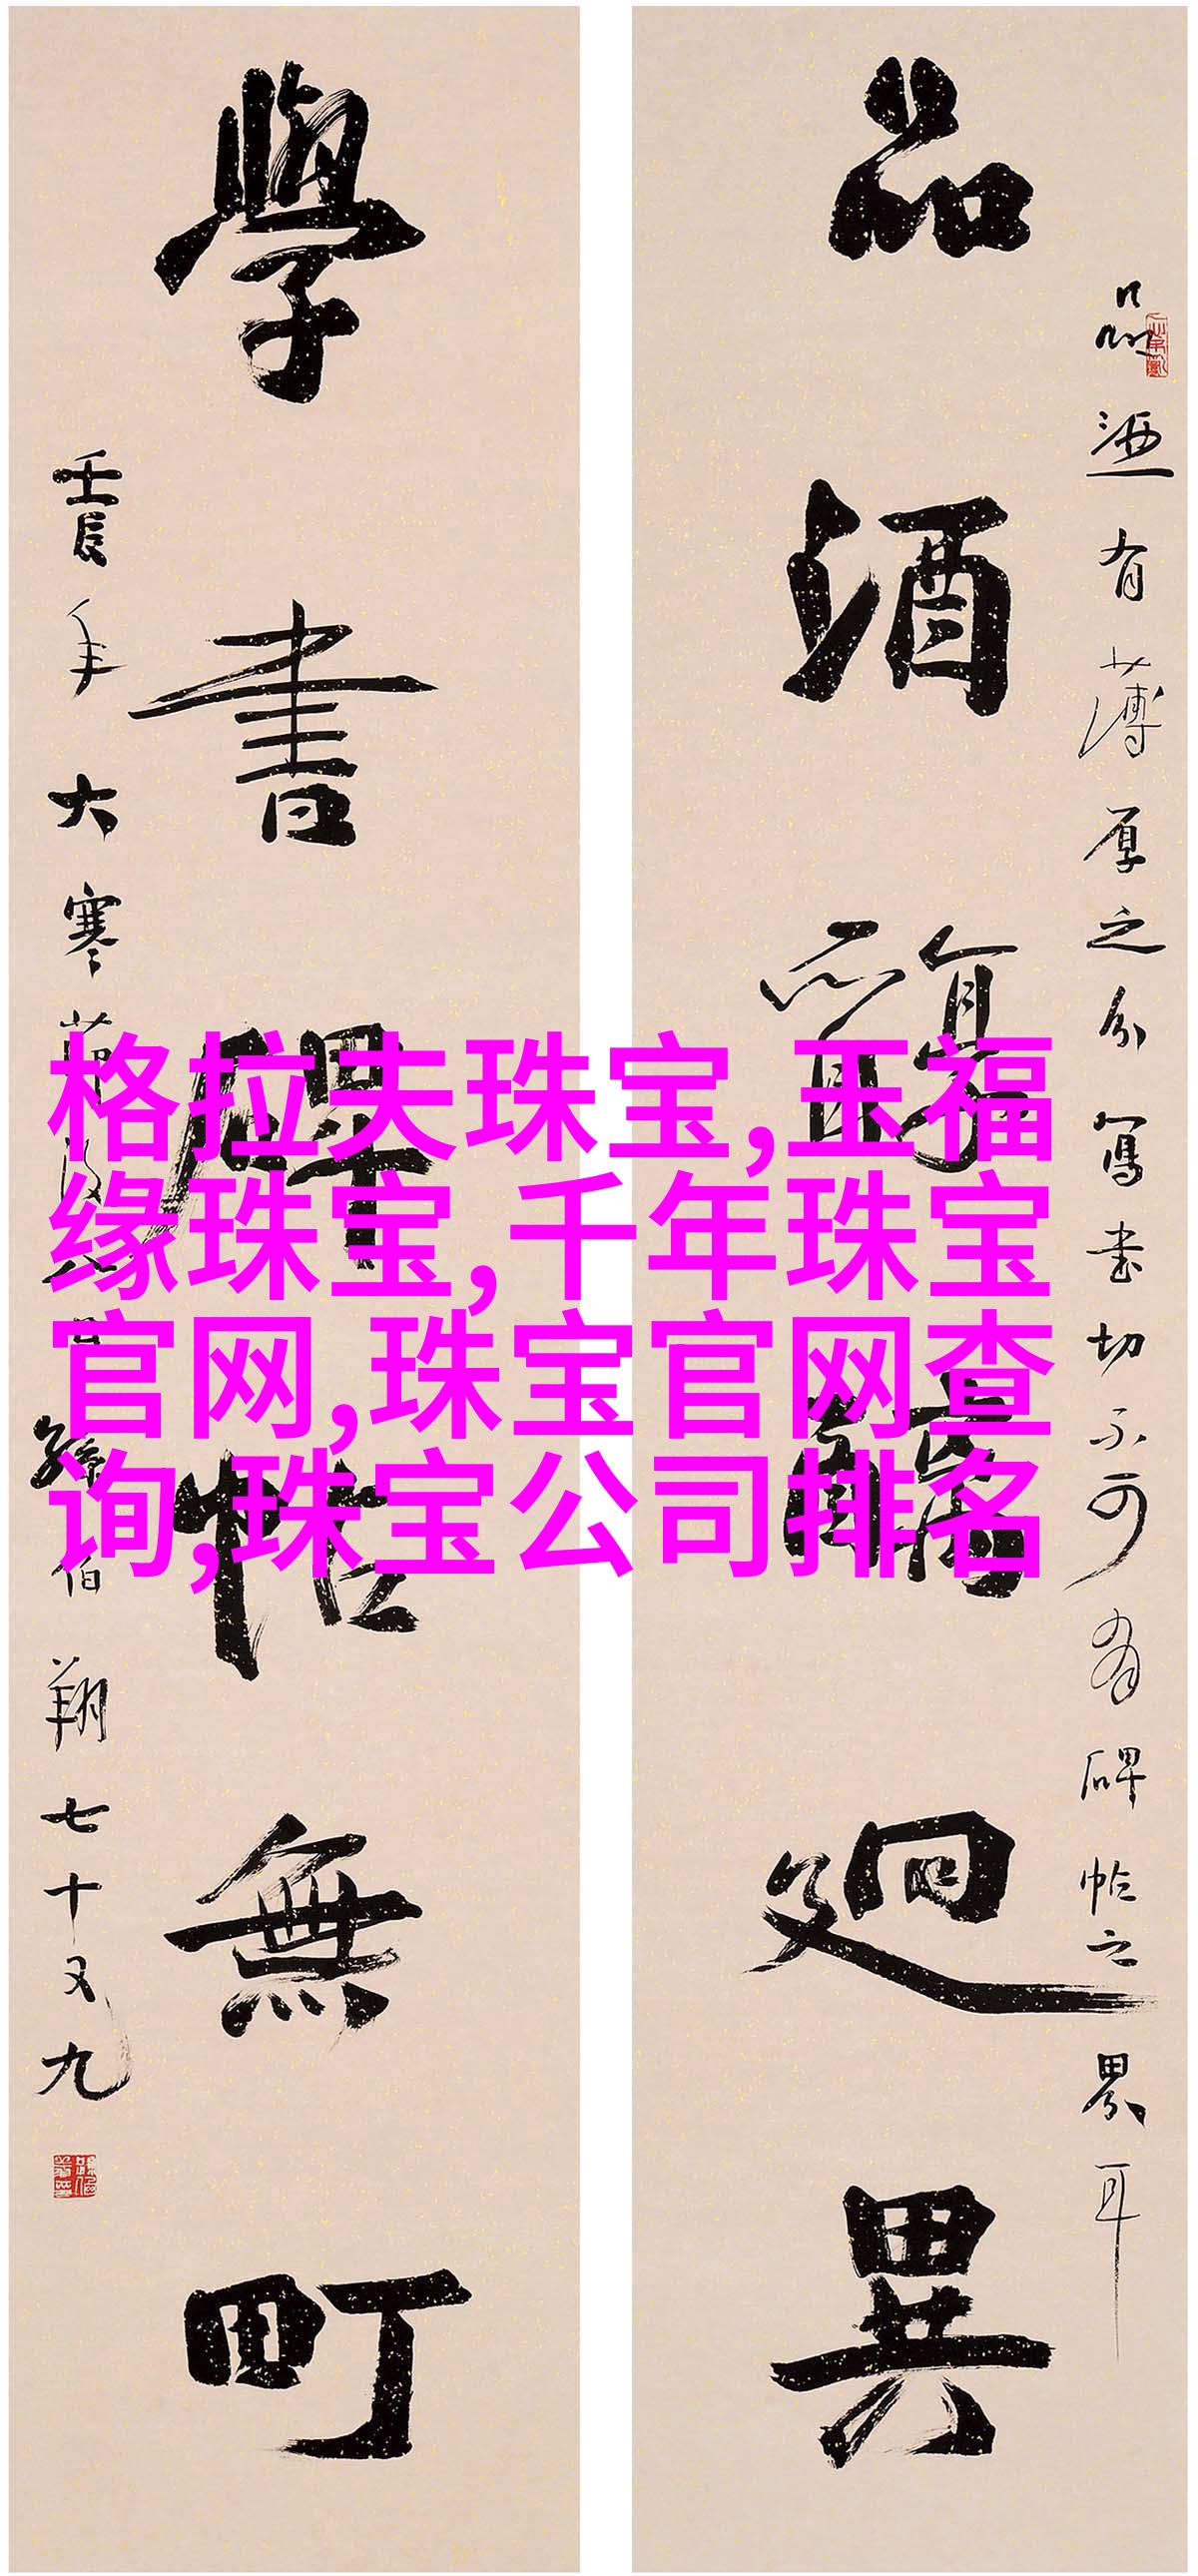 品酒有薄厚之分寫书切不可有碑帖之界耳
品酒迥異
學書碑帖無町
壬辰年大寒孫伯翔七十又九
格拉夫珠宝,玉福
缘珠宝,千年珠宝
官网,珠宝官网查
询,珠宝公司排名